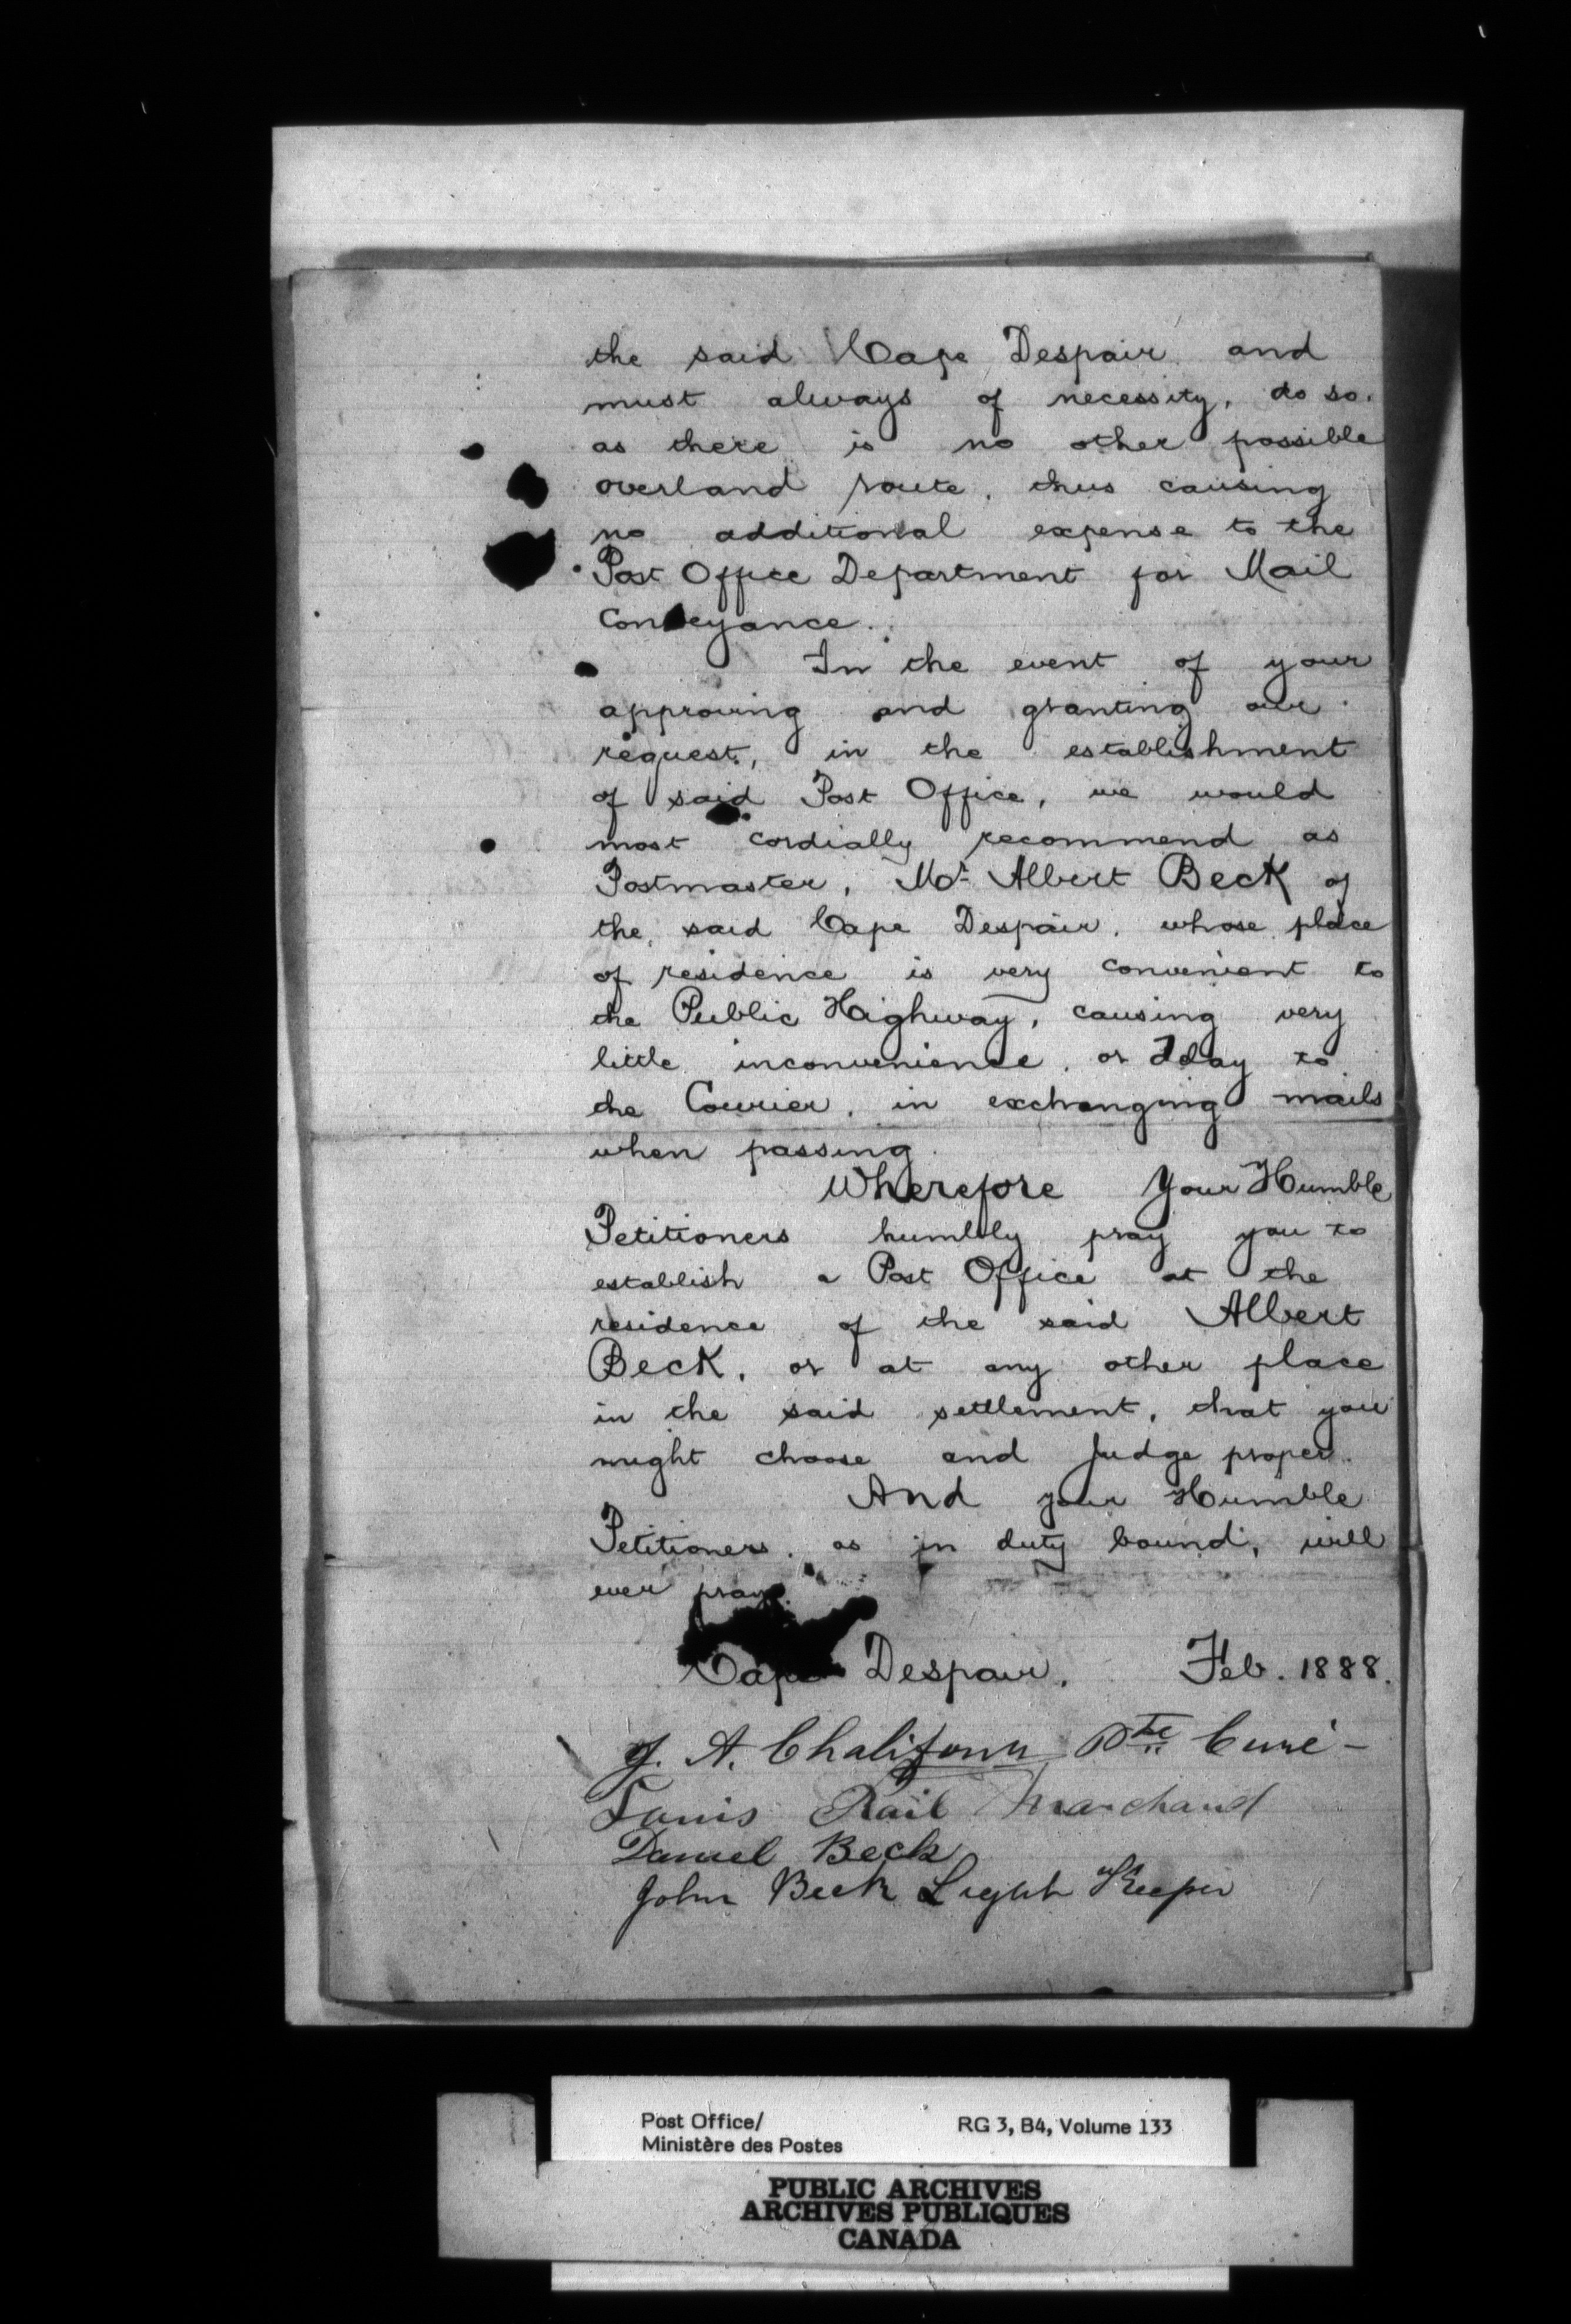 the said Cape Despair and
must always of necessity, do so.
as there is no other possible
overland route, thus causing
no additional expense to the
Post Office Department for Mail
Conveyance.
In the event of your
approving and granting our
request, in the establishment
of said Post Office, we would
most cordially recommend as
Postmaster, Mr. Albert Beck of
the said Cape Despair, whose place
of residence is very convenient to
the Public Highway, causing very
little inconvenience, or delay to
the Courier, in exchanging mails
when passing.
Wherefore Your Humble
Petitioners humbly pray you to
establish a Post Office at the
residence of the said Albert
Beck, or at any other place
in the said settlement, that you
might choose and Judge proper.
And your Humble
Petitioners, as in duty bound, will
ever pray.
Cape Despair, Feb. 1888.
J. A. Chalifour Ptre Curé -
Louis Rail Marchand
Daniel Beck
John Beck Light Keeper
Post Office/ RG 3, B4, Volume 133
Ministère des Postes
PUBLIC ARCHIVES
ARCHIVES PUBLIQUES
CANADA